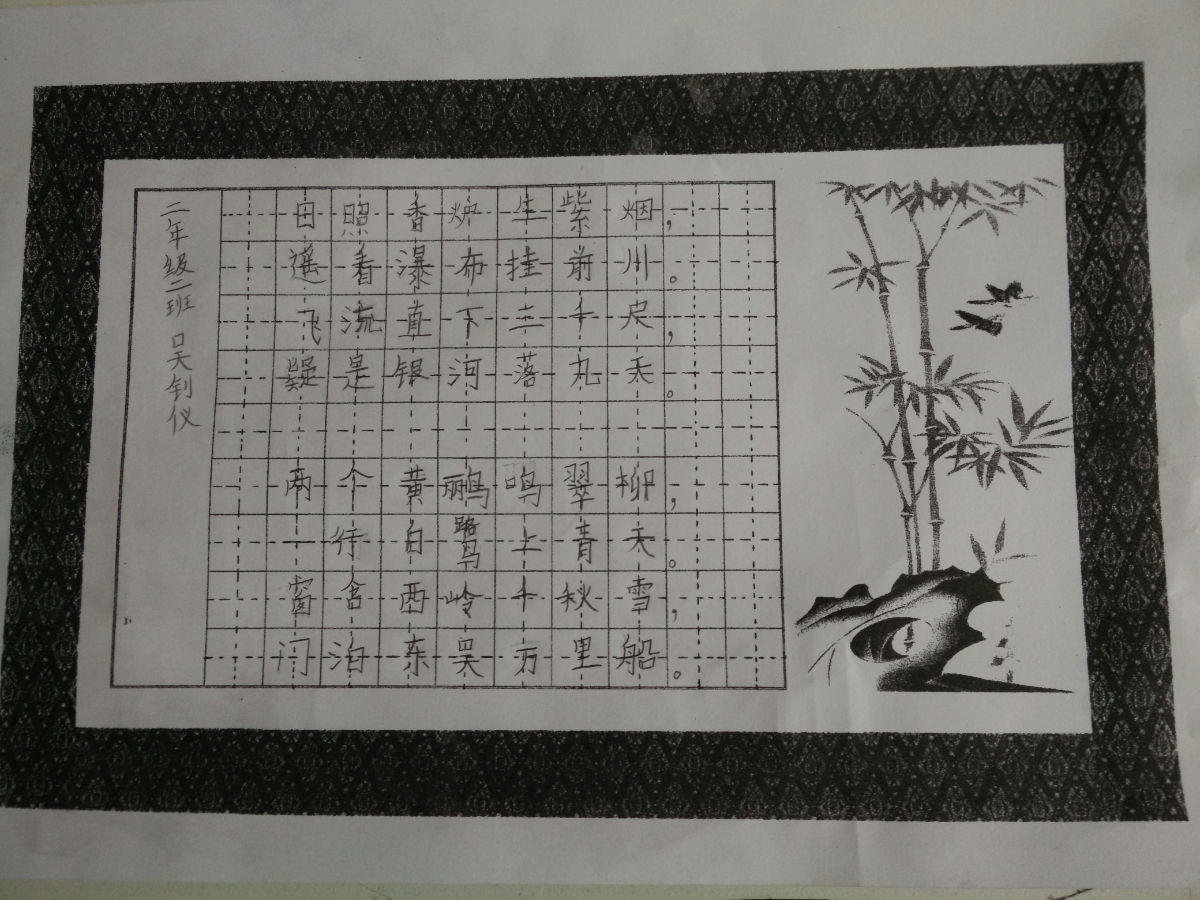 二年级二班 吴钊仪
日照香炉生紫烟，
遥看瀑布挂前川。
飞流直下三千尺，
疑是银河落丸天。
两个黄鹂鸣翠柳，
一行白鹭上青天。
窗含西岭千秋雪，
门泊东吴万里船。